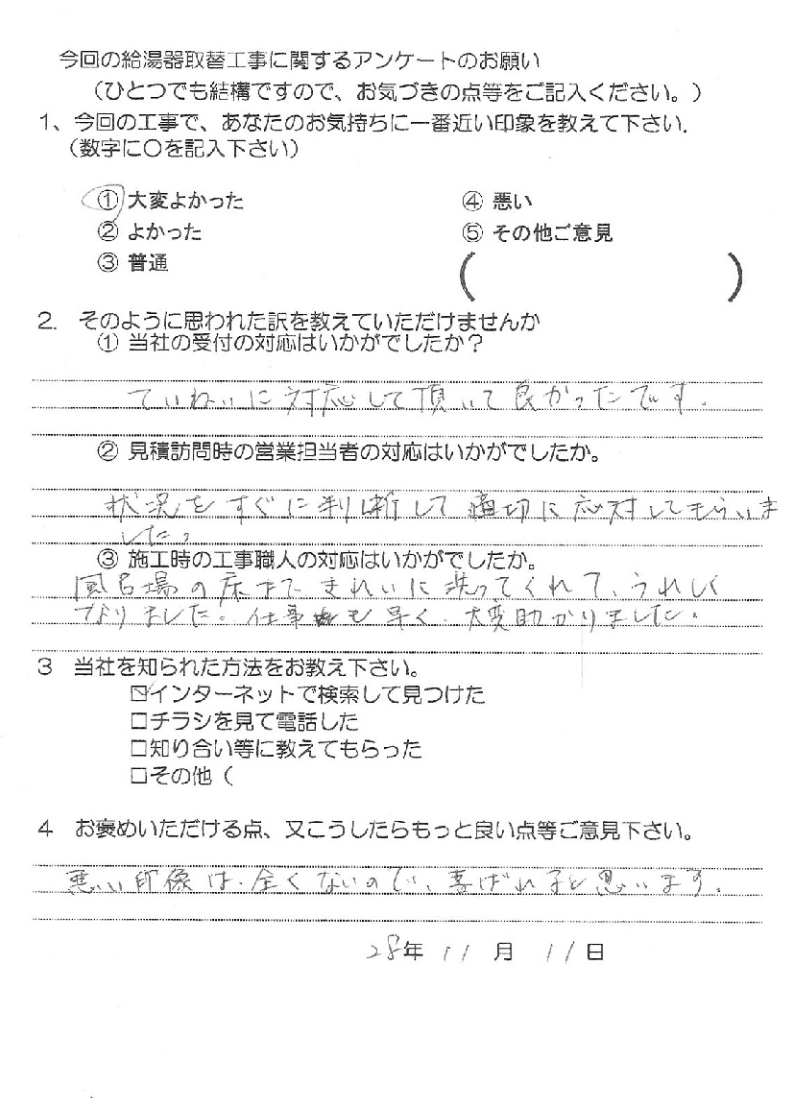 今回の給湯器取替工事に関するアンケートのお願い
（ひとつでも結構ですので、お気づきの点等をご記入ください。）
1、今回の工事で、あなたのお気持ちに一番近い印象を教えて下さい．
（数字に〇を記入下さい）
① 大変よかった ④ 悪い
② よかった ⑤ その他ご意見
③ 普通 ( )
2. そのように思われた訳を教えていただけませんか
① 当社の受付の対応はいかがでしたか？
ていねいに対応して頂いて良かったです．
② 見積訪問時の営業担当者の対応はいかがでしたか。
状況をすぐに判断して適切に応対してもらいま
した。
③ 施工時の工事職人の対応はいかがでしたか。
風呂場の床まできれいに洗ってくれて、うれしく
なりました！仕事も早く、大変助かりました．
3 当社を知られた方法をお教え下さい。
☑インターネットで検索して見つけた
□チラシを見て電話した
□知り合い等に教えてもらった
□その他（
4 お褒めいただける点、又こうしたらもっと良い点等ご意見下さい。
悪い印像は、全くないので、喜ばれると思います．
28年 11月 11日